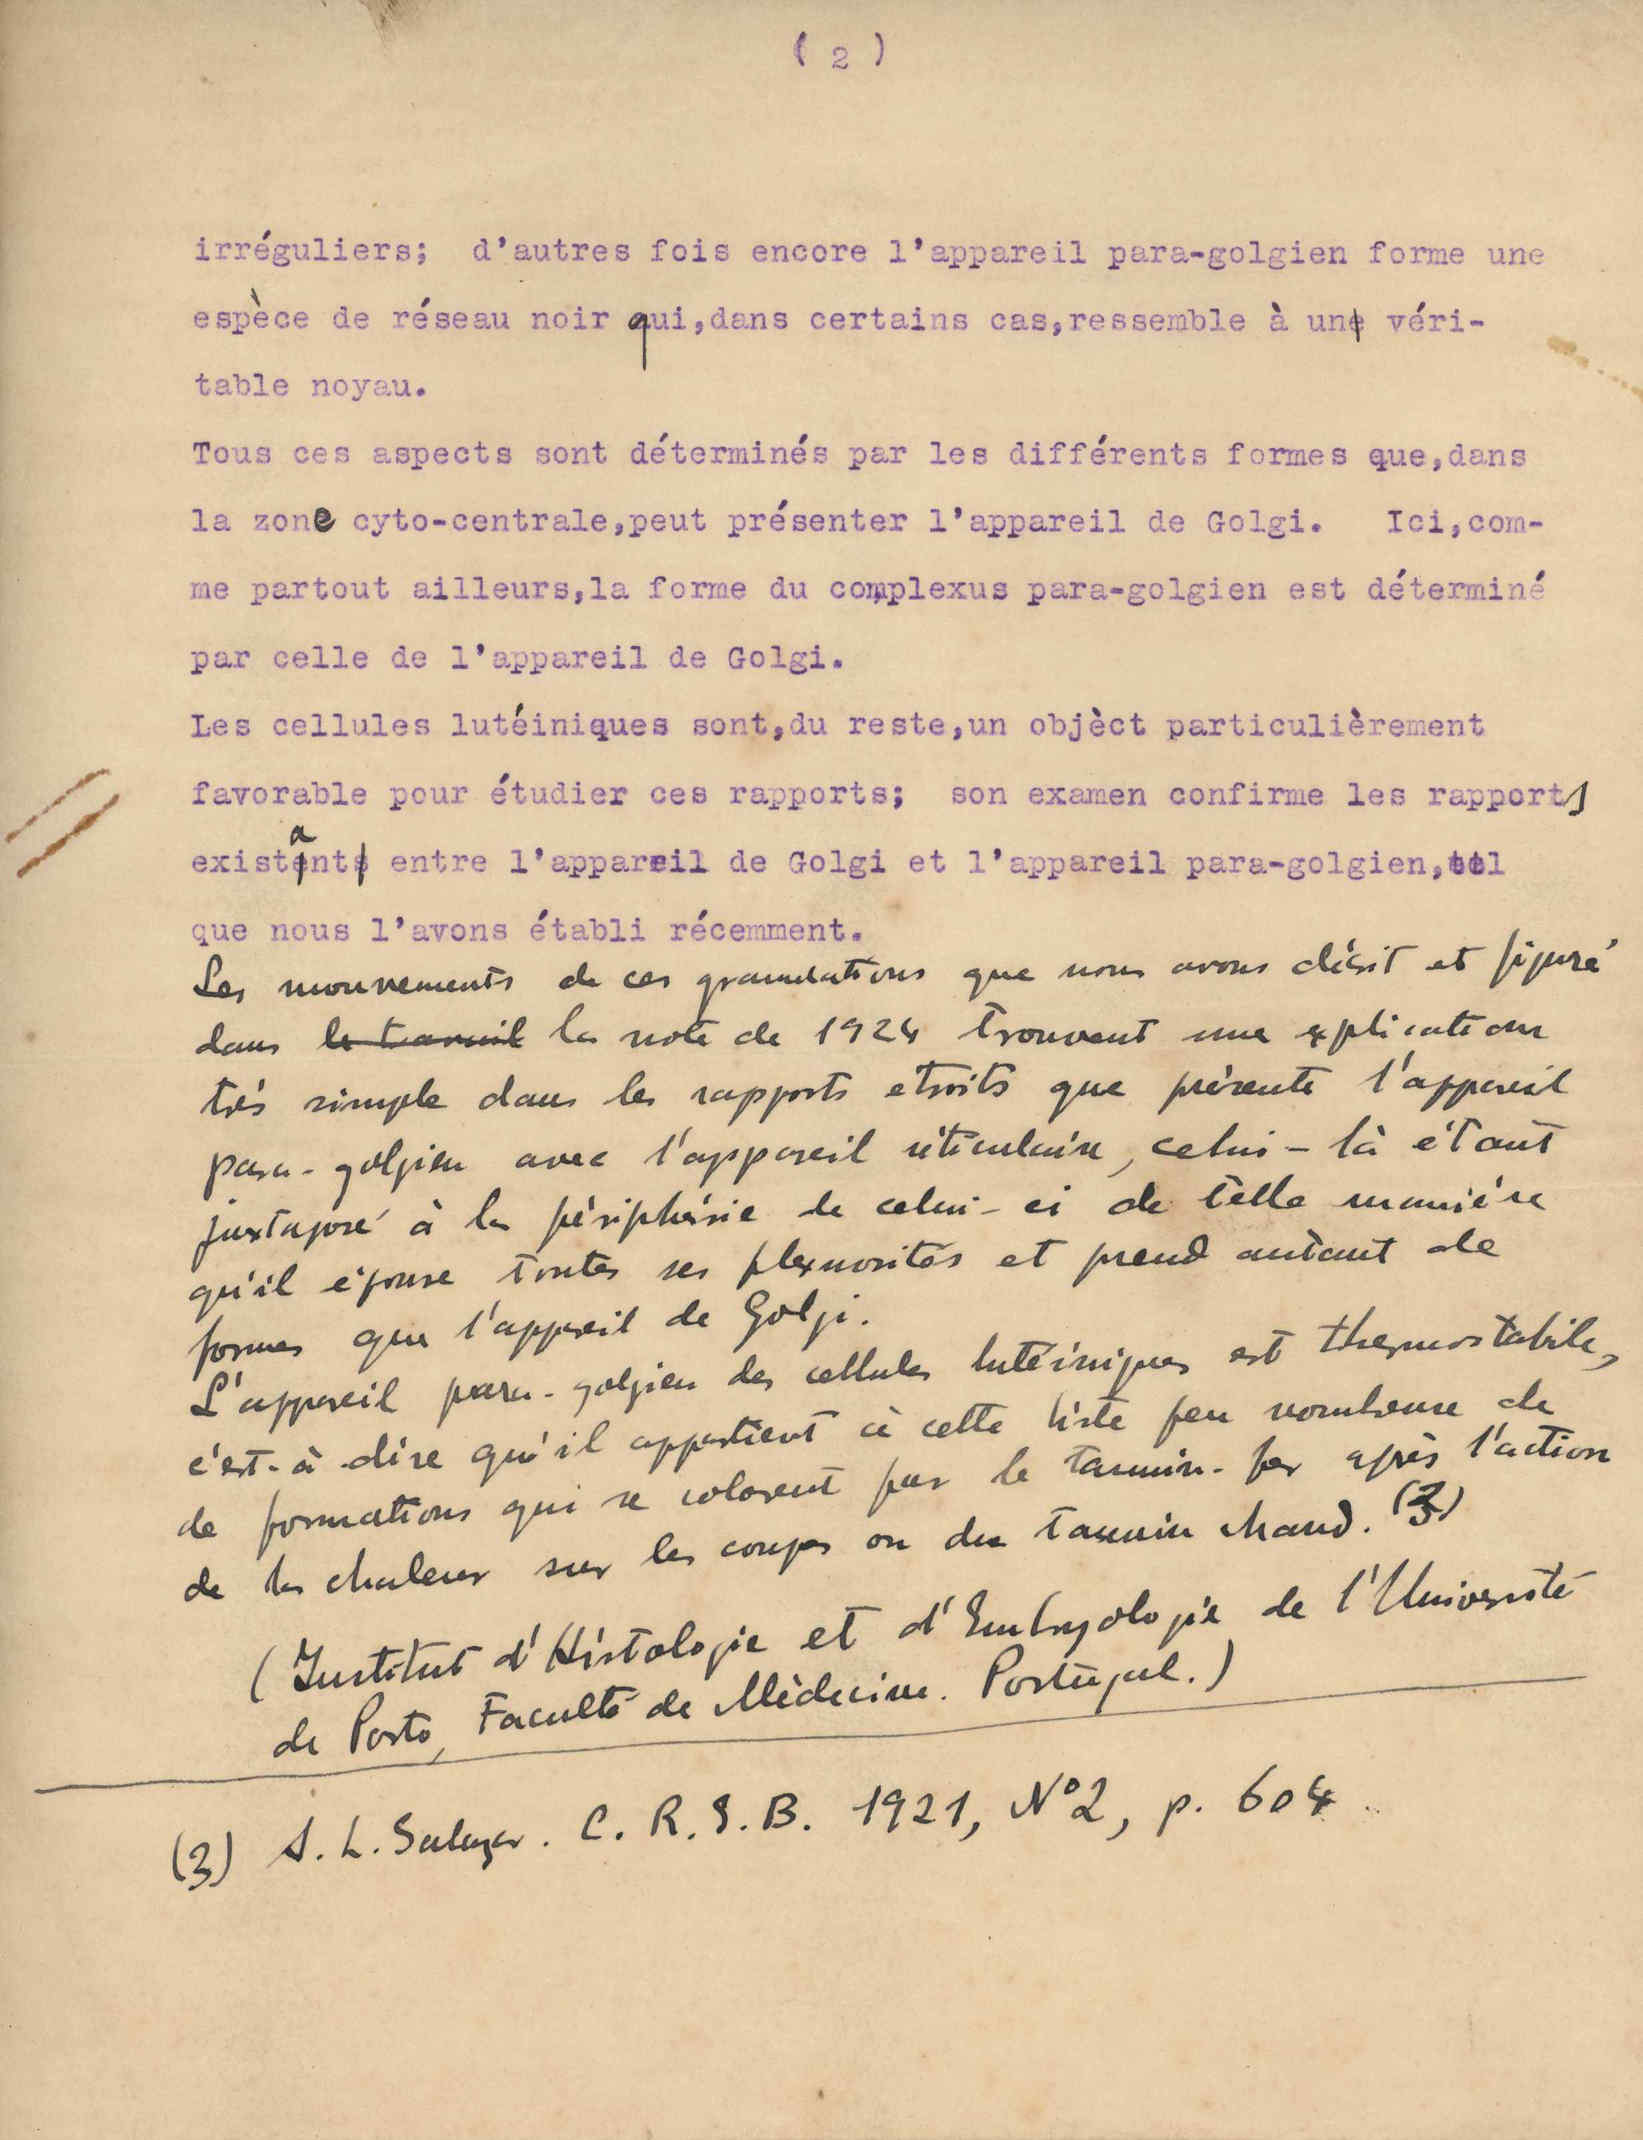 ( 2 )
irréguliers; d'autres fois encore l'appareil para-golgien forme une
espèce de réseau noir qui,dans certains cas,ressemble à un véri-
table noyau.
Tous ces aspects sont déterminés par les différents formes que,dans
la zone cyto-centrale,peut présenter l'appareil de Golgi. Ici,com-
me partout ailleurs,la forme du complexus para-golgien est déterminé
par celle de l'appareil de Golgi.
Les cellules lutéiniques sont,du reste,un objèct particulièrement
favorable pour étudier ces rapports; son examen confirme les rapports
existant entre l'appareil de Golgi et l'appareil para-golgien,tel
que nous l'avons établi récemment.
Les mouvements de ces granulations que nous avons décrit et figuré
dans le travail la note de 1924 trouvent une explication
très simple dans les rapports etroits que présente l'appareil
para-golgien avec l'appareil réticulaire, celui-là étant
juxtaposé à la périphérie de celui-ci de telle manière
qu'il épouse toutes ses flexuosités et prend autant de
formes que l'appareil de Golgi.
L'appareil para-golgien des cellules lutéiniques est thermostabile,
c'est-à-dire qu'il appartient à cette liste peu nombreuse de
de formations qui se colorent par le tannin-fer après l'action
de la chaleur sur les coupes ou du tannin chaud. (3)
(Institut d'Histologie et d'Embryologie de l'Université
de Porto, Faculté de Médecine. Portugal.)
(3) A. L. Salazar. C. R. S. B. 1921, Nº2, p. 604